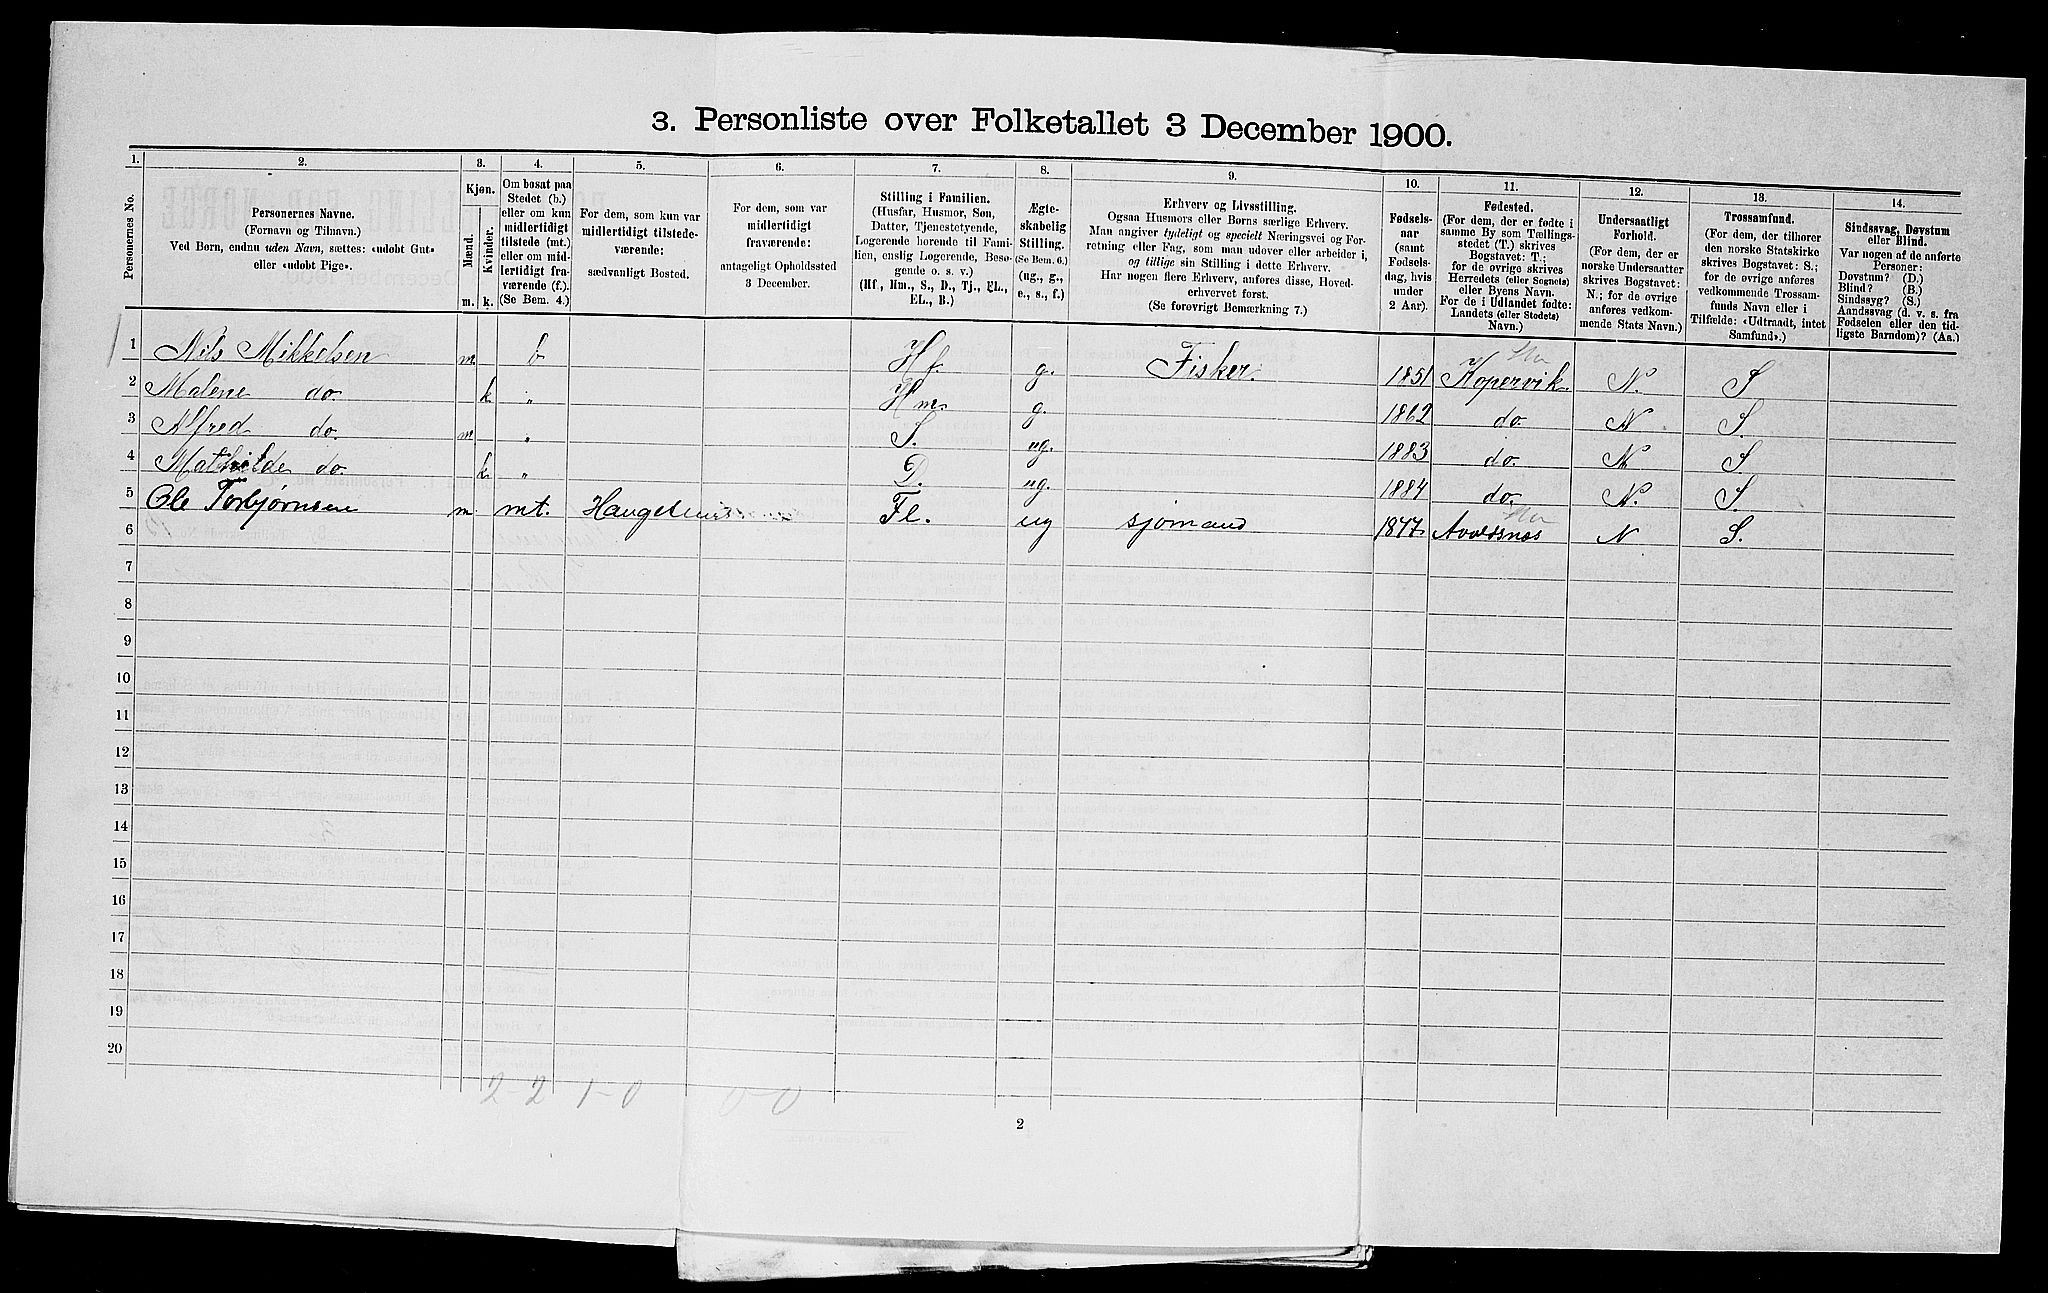 3. Personliste over Folketallet 3 December 1900.
1. 2. 3. 4. 5. 6. 7. 8. 9. 10. 11. 12. 13. 14.
Personernes No.
Personernes Navne.
(Fornavn og Tilnavn.)
Ved Børn, endnu uden Navn, sættes: «udøbt Gut»
eller «udøbt Pige».
Kjøn.
Mænd.
Kvinder.
m. k.
Om bosat paa
Stedet (b.)
eller om kun
midlertidigt
tilstede (mt.)
eller om mid-
lertidigt fra-
værende (f.).
(Se Bem. 4.)
For dem, som kun var
midlertidigt tilstede-
værende:
sædvanligt Bosted.
For dem, som var
midlertidigt
fraværende:
antageligt Opholdssted
3 December.
Stilling i Familien.
(Husfar, Husmor, Søn,
Datter, Tjenestetyende,
Logerende hørende til Fami-
lien, enslig Logerende, Besø-
gende o. s. v.)
(Hf., Hm., S., D., Tj., FL.,
EL., B.)
Ægte-
skabelig
Stilling.
(Se Bem. 6.)
(ug., g.,
e., s., f.)
Erhverv og Livsstilling.
Ogsaa Husmors eller Børns særlige Erhverv.
Man angiver tydeligt og specielt Næringsvei og For-
retning eller Fag, som man udøver eller arbeider i,
og tillige sin Stilling i dette Erhverv.
Har nogen flere Erhverv, anføres disse, Hoved-
erhvervet først.
(Se forøvrigt Bemærkning 7.)
Fødsels-
aar
(samt
Fødsels-
dag, hvis
under
2 Aar).
Fødested.
(For dem, der er fødte i
samme By som Tællings-
stedet (T.) skrives
Bogstavet: T.;
for de øvrige skrives
Herredets (eller Sognets)
eller Byens Navn.
For de i Udlandet fødte:
Landets (eller Stedets)
Navn.)
Undersaatligt
Forhold.
(For dem, der er
norske Undersaatter
skrives Bogstavet:
N.; for de øvrige
anføres vedkom-
mende Stats Navn.)
Trossamfund.
(For dem, der tilhører
den norske Statskirke
skrives Bogstavet: S.;
for de øvrige anføres
vedkommende Trossam-
funds Navn eller i
Tilfælde: «Udtraadt, intet
Samfund».)
Sindssvag, Døvstum
eller Blind.
Var nogen af de anførte
Personer:
Døvstum? (D.)
Blind? (B.)
Sindssyg? (S.)
Aandssvag (d. v. s. fra
Fødselen eller den tid-
ligste Barndom)? (Aa.)
1 Nils Mikkelsen m. b Hf. g. Fisker. 1851 Kopervik. N. S
2 Malene do. k „ Hm. g. 1862 do. N. S.
3 Alfred do. m „ S. ug. 1883 do. N. S
4 Mathilde do. k „ D. ug. 1884 do. N. S.
5 Ole Torbjørnsen m. mt. Haugesund Fl. ug sjømand 1847 Avaldsnes N S.
6
7
8
9
10
11
12
13
14
15
16
17
18
19
20
2-2 1-0 0-0
2